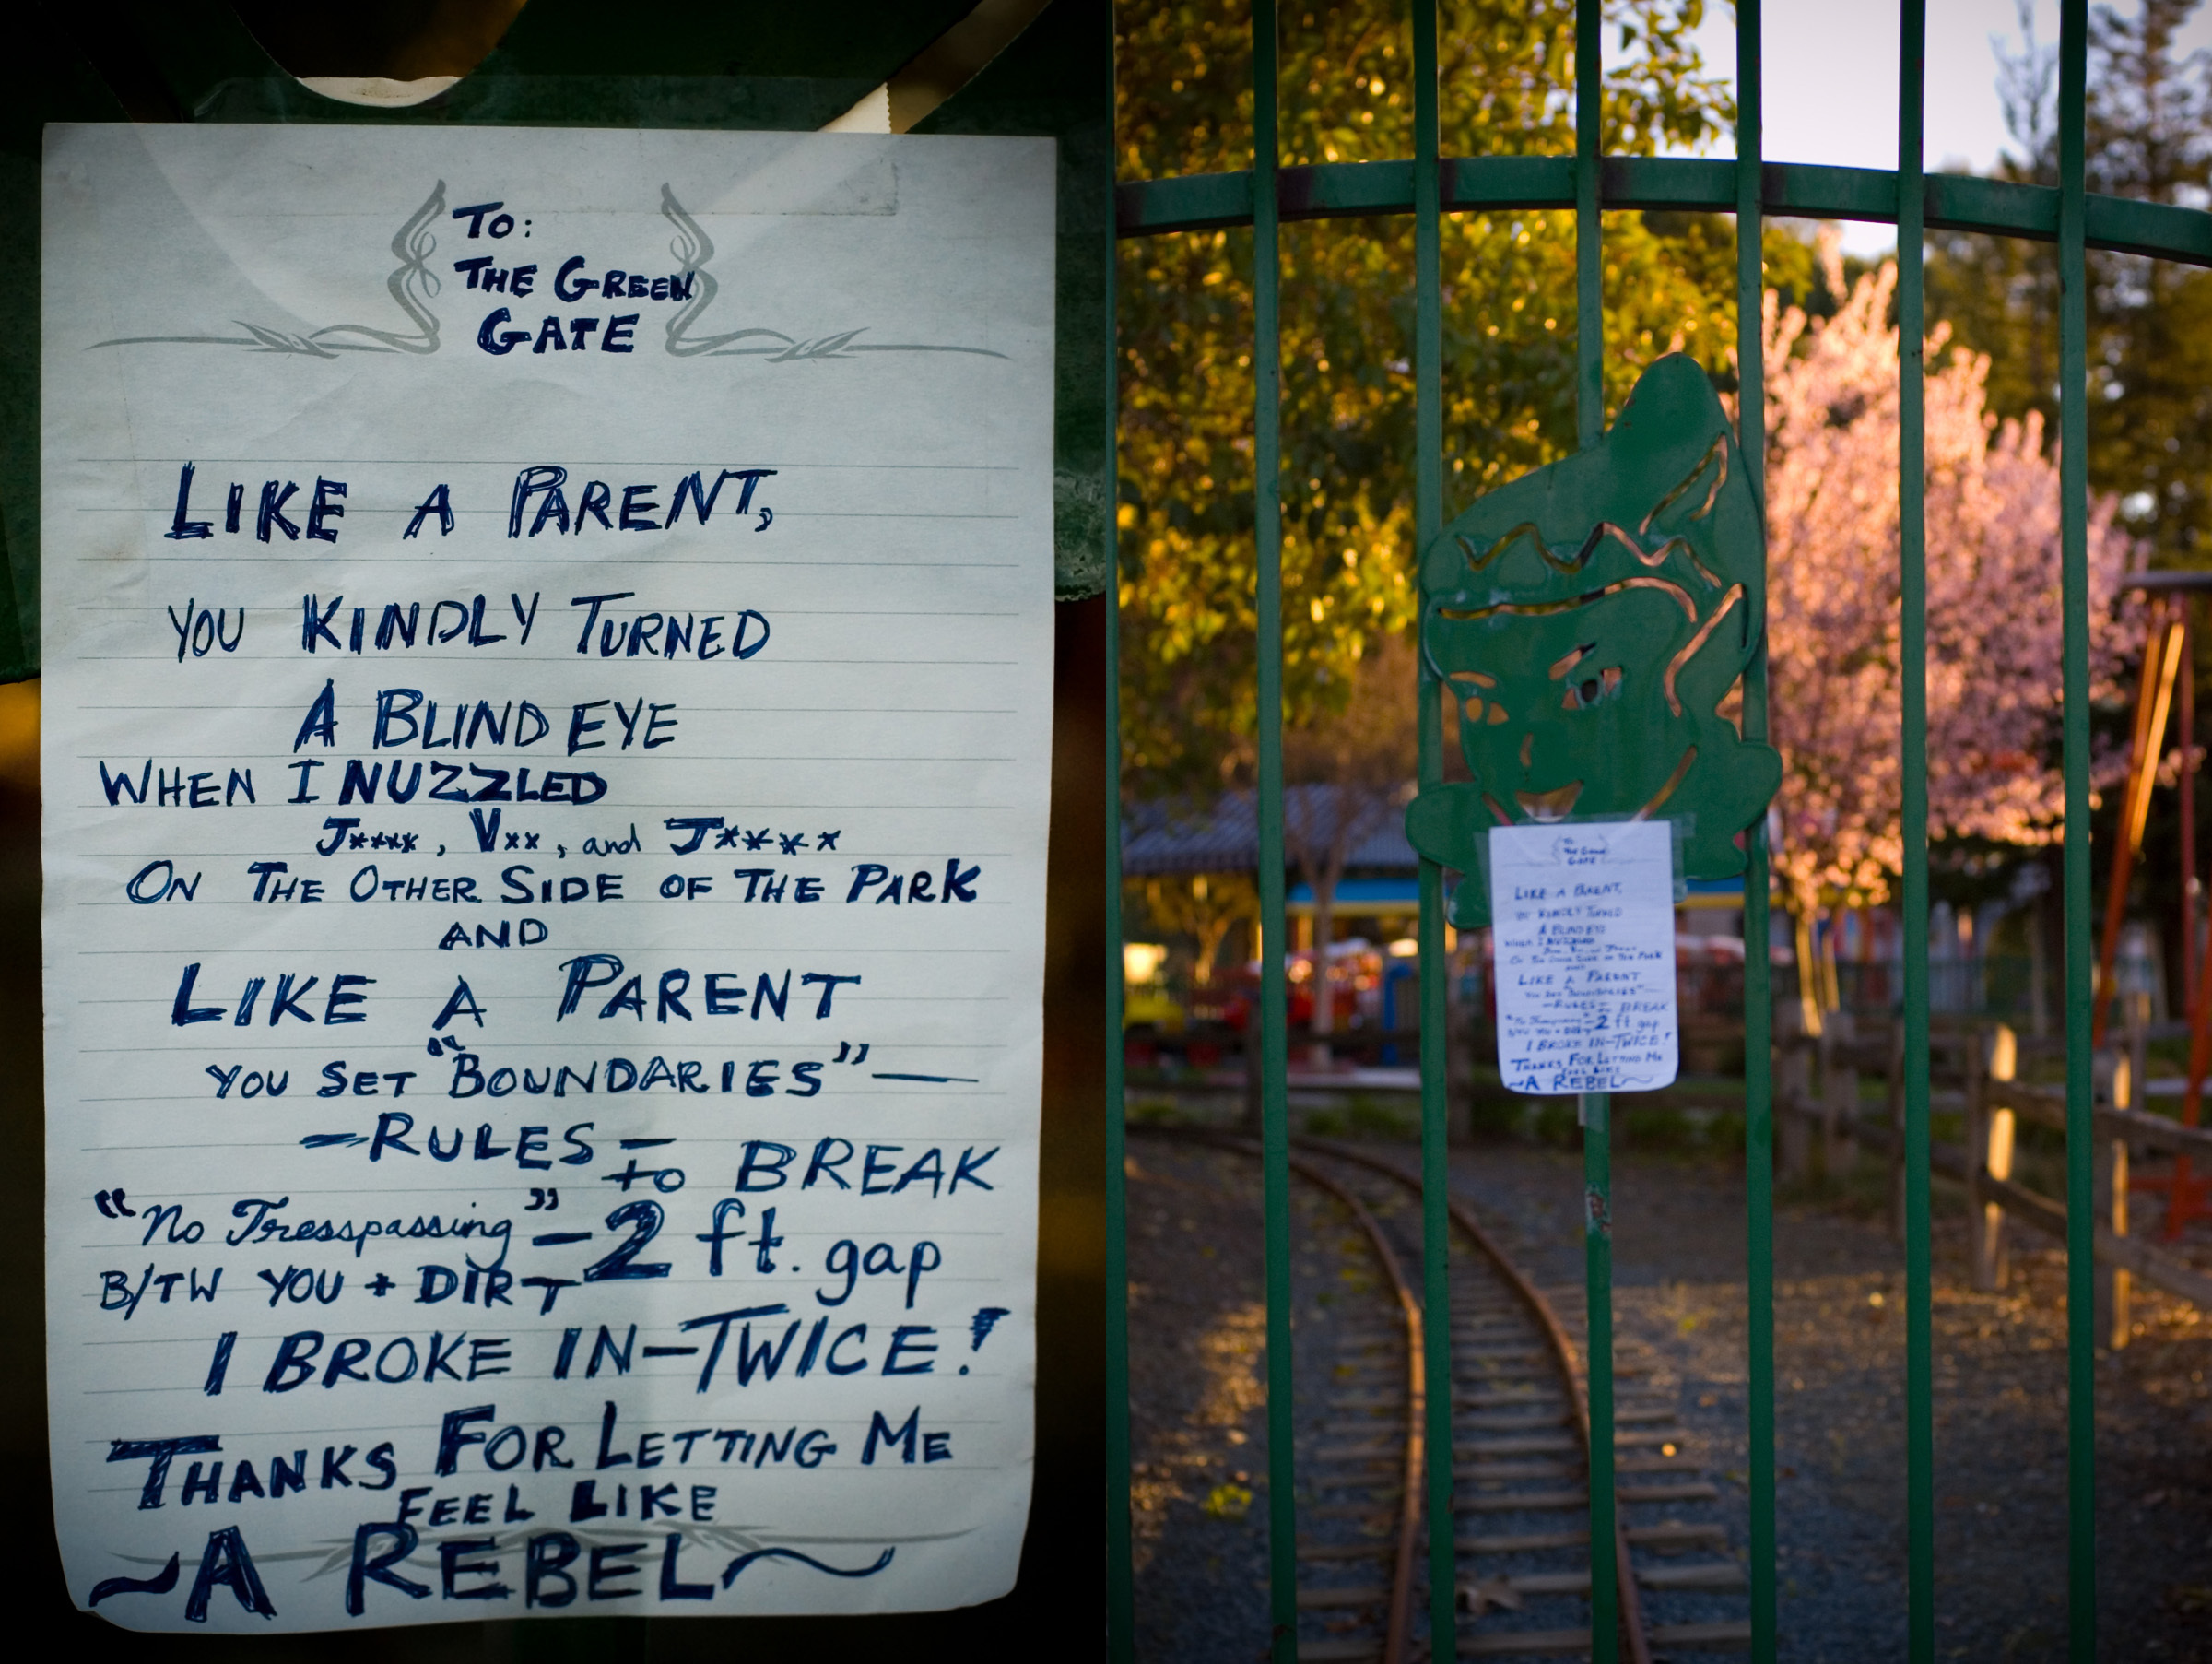 TO:
THE GREEN
GATE
LIKE A PARENT,
YOU KINDLY TURNED
A BLIND EYE
WHEN I NUZZLED
J****, Vxx, and J****
ON THE OTHER SIDE OF THE PARK
AND
LIKE A PARENT
YOU SET "BOUNDARIES"—
—RULES— to BREAK
"No Tresspassing" — 2 ft. gap
B/TW YOU + DIRT
I BROKE IN—TWICE!
THANKS FOR LETTING ME
FEEL LIKE
~A REBEL~
TO:
THE GREEN
GATE
LIKE A PARENT,
YOU KINDLY TURNED
A BLIND EYE
WHEN I NUZZLED
ON THE OTHER SIDE OF THE PARK
AND
LIKE A PARENT
YOU SET "BOUNDARIES"—
—RULES— to BREAK
"No Tresspassing" — 2 ft gap
B/TW YOU + DIRT
I BROKE IN—TWICE!
THANKS FOR LETTING ME
FEEL LIKE
~A REBEL~